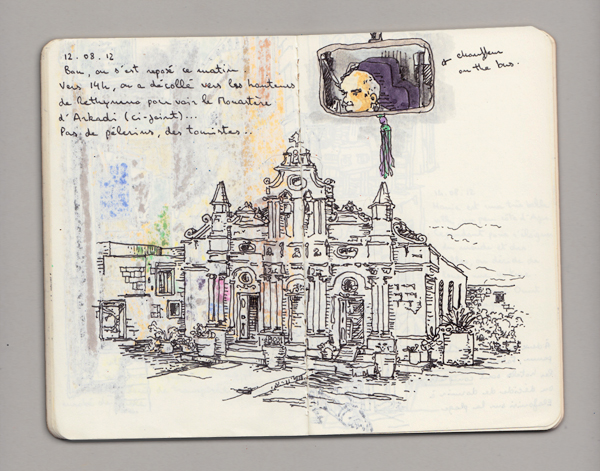 12.08.12
Bon, on s'est reposé ce matin
Vers 14h, on a décollé vers les hauteurs
de Rethymno pour voir le Monastère
d'Arkadi (ci-joint)...
Pas de pèlerins, des touristes..
chauffeur
on the bus.